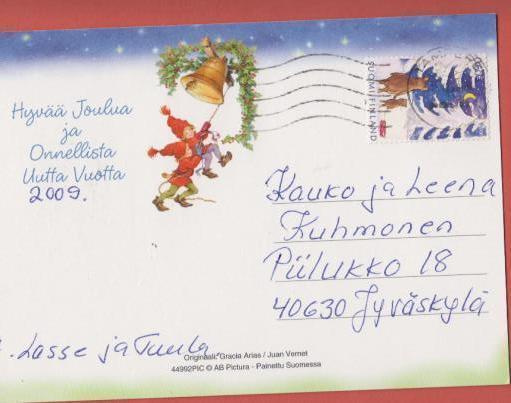 Hyvää Joulua
ja
Onnellista
Uutta Vuotta
2009.
SUOMI FINLAND
Kauko ja Leena
Kuhmonen
Piilukko 18
40630 Jyväskylä
. Lasse ja Tuula
Originaali: Gracia Arias / Juan Vernet
44992PIC © AB Pictura - Painettu Suomessa